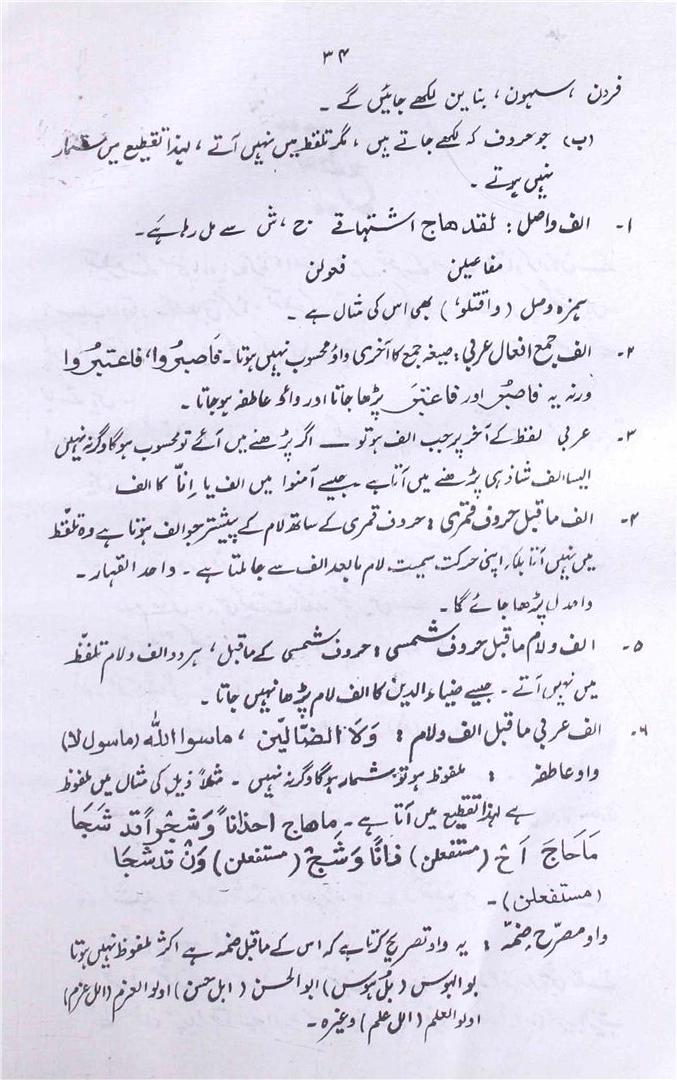 ۳۴
فردن ، سبہون ، بناین لکھے جائیں گے ۔
(ب) جو حروف کہ لکھے جاتے ہیں ، مگر تلفظ میں نہیں آتے ، لہذا تقیطیع میں شمار
نہیں ہوتے ۔
۱۔ الف واصل : لقد ھاج اشتہاقے ج ، ش سے مل رہا ہے ۔
مفاعیلن فعولن
ہمزہ وصل (واقتلو،) بھی اس کی مثال ہے ۔
۲۔ الف جمع افعال عربی : صیغہ جمع کا آخری واؤ محسوب نہیں ہوتا ۔ فاصبروا، فاعتبروا
ورنہ یہ فاصبر اور فاعتبر پڑھا جاتا اور وائے عاطفہ ہو جاتا ۔
۳۔ عربی لفظ کے آخر پر جب الف ہو تو — اگر پڑھنے میں آئے تو محسوب ہوگا وگرنہ نہیں
ایسا الف شاذ ہی پڑھنے میں آتا ہے جیسے آمنوا میں الف یا اِنّا کا الف
۴۔ الف ماقبل حروف قمری : حروف قمری کے ساتھ لام کے پیشتر جو الف ہوتا ہے وہ تلفظ
میں نہیں آتا بلکہ اپنی حرکت سمیت لام مابعد الف سے جا ملتا ہے ۔ واحد القہار ۔
واحدل پڑھا جائے گا ۔
۵۔ الف و لام ماقبل حروف شمسی : حروف شمسی کے ماقبل ، ہر دو الف و لام تلفظ
میں نہیں آتے ۔ جیسے ضیاء الدین کا الف لام پڑھا نہیں جاتا ۔
۶۔ الف عربی ماقبل الف و لام : وَلَا الضالّین ، ماسوا اللہ (ماسول لا)
واو عاطفہ : ملفوظ ہو تو شمار ہوگا وگرنہ نہیں ۔ مثلاً ذیل کی مثال میں ملفوظ
ہے لہذا تقیطیع میں آتا ہے ۔ ماھاج احذاناً وَشجْواً قد شَجَا
مَاحَاجَ اَحْ (مستفعلن) فانًا وَشَجْ (مستفعلن) وَنْ قد شجَا
(مستفعلن) ۔
واو مصرّح ضمّہ : یہ واو تصریح کرتا ہے کہ اس کے ماقبل ضمہ ہے اکثر ملفوظ نہیں ہوتا
بوالہوس (بُل ہوس) ابوالحسن (ابل حسن) اولوالعزم (الل عزم)
اولوالعلم (الل علم) وغیرہ ۔